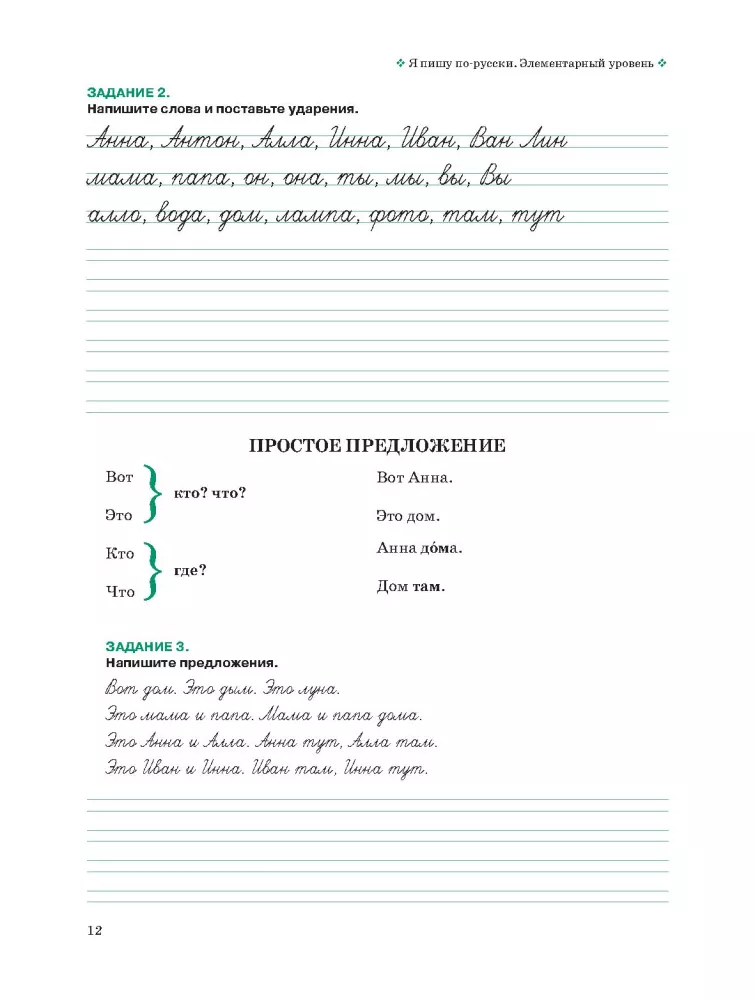 ❖ Я пишу по-русски. Элементарный уровень ❖
ЗАДАНИЕ 2.
Напишите слова и поставьте ударения.
Анна, Антон, Алла, Инна, Иван, Ван Лин
мама, папа, он, она, ты, мы, вы, Вы
алло, вода, дом, лампа, фото, там, тут
ПРОСТОЕ ПРЕДЛОЖЕНИЕ
Вот
Это
кто? что?
Вот Анна.
Это дом.
Кто
Что
где?
Анна до́ма.
Дом там.
ЗАДАНИЕ 3.
Напишите предложения.
Вот дом. Это дым. Это луна.
Это мама и папа. Мама и папа дома.
Это Анна и Алла. Анна тут, Алла там.
Это Иван и Инна. Иван там, Инна тут.
12